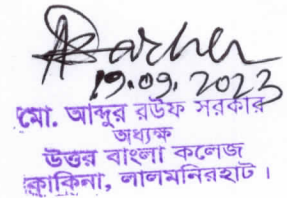 19.09.2023
মো. আব্দুর রউফ সরকার
অধ্যক্ষ
উত্তর বাংলা কলেজ
কাকিনা, লালমনিরহাট।